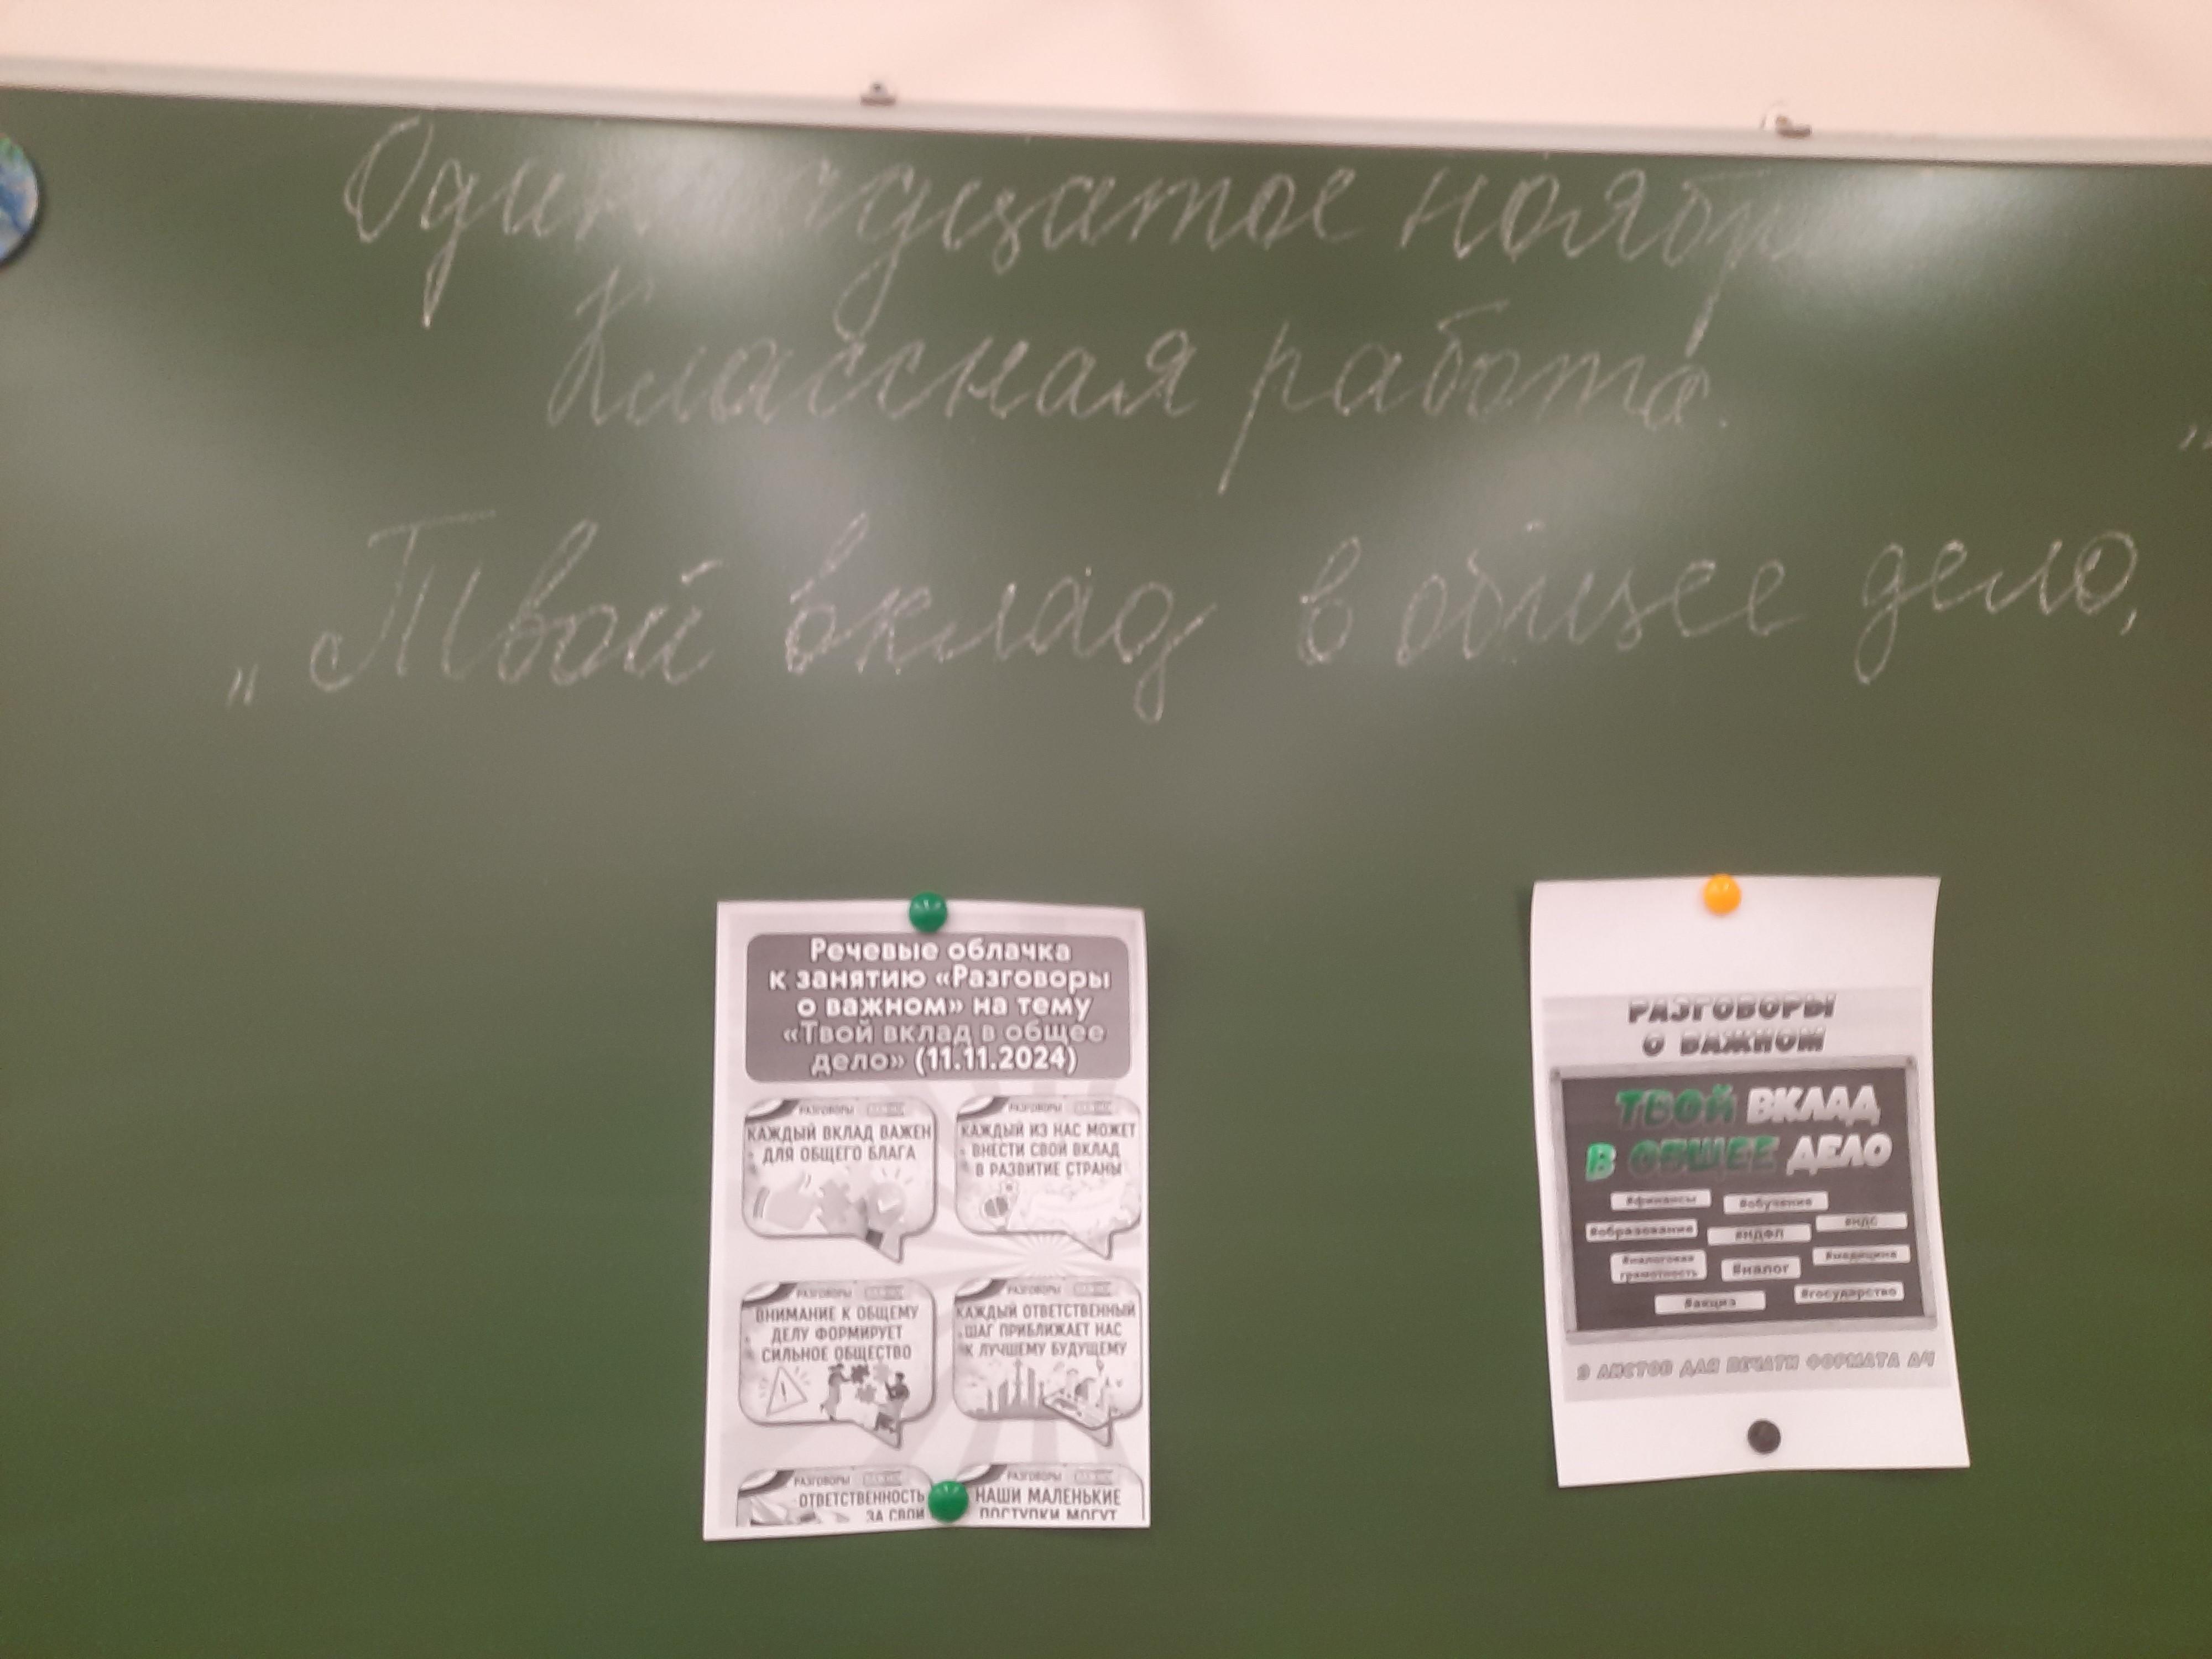 Одиннадцатое ноября
Классная работа.
„Твой вклад в общее дело,
Речевые облачка
к занятию «Разговоры
о важном» на тему
«Твой вклад в общее
дело» (11.11.2024)
РАЗГОВОРЫ
КАЖДЫЙ ВКЛАД ВАЖЕН
ДЛЯ ОБЩЕГО БЛАГА
РАЗГОВОРЫ
КАЖДЫЙ ИЗ НАС МОЖЕТ
ВНЕСТИ СВОЙ ВКЛАД
В РАЗВИТИЕ СТРАНЫ
РАЗГОВОРЫ
ВНИМАНИЕ К ОБЩЕМУ
ДЕЛУ ФОРМИРУЕТ
СИЛЬНОЕ ОБЩЕСТВО
РАЗГОВОРЫ
КАЖДЫЙ ОТВЕТСТВЕННЫЙ
ШАГ ПРИБЛИЖАЕТ НАС
К ЛУЧШЕМУ БУДУЩЕМУ
РАЗГОВОРЫ
ОТВЕТСТВЕННОСТЬ
ЗА СВОИ
РАЗГОВОРЫ
НАШИ МАЛЕНЬКИЕ
ПОСТУПКИ МОГУТ
РАЗГОВОРЫ
О ВАЖНОМ
ТВОЙ ВКЛАД
В ОБЩЕЕ ДЕЛО
#финансы #обучение
#образование #НДФЛ #НДС
#налоговая грамотность #налог #медицина
#акциз #государство
9 ЛИСТОВ ДЛЯ ПЕЧАТИ ФОРМАТА А4